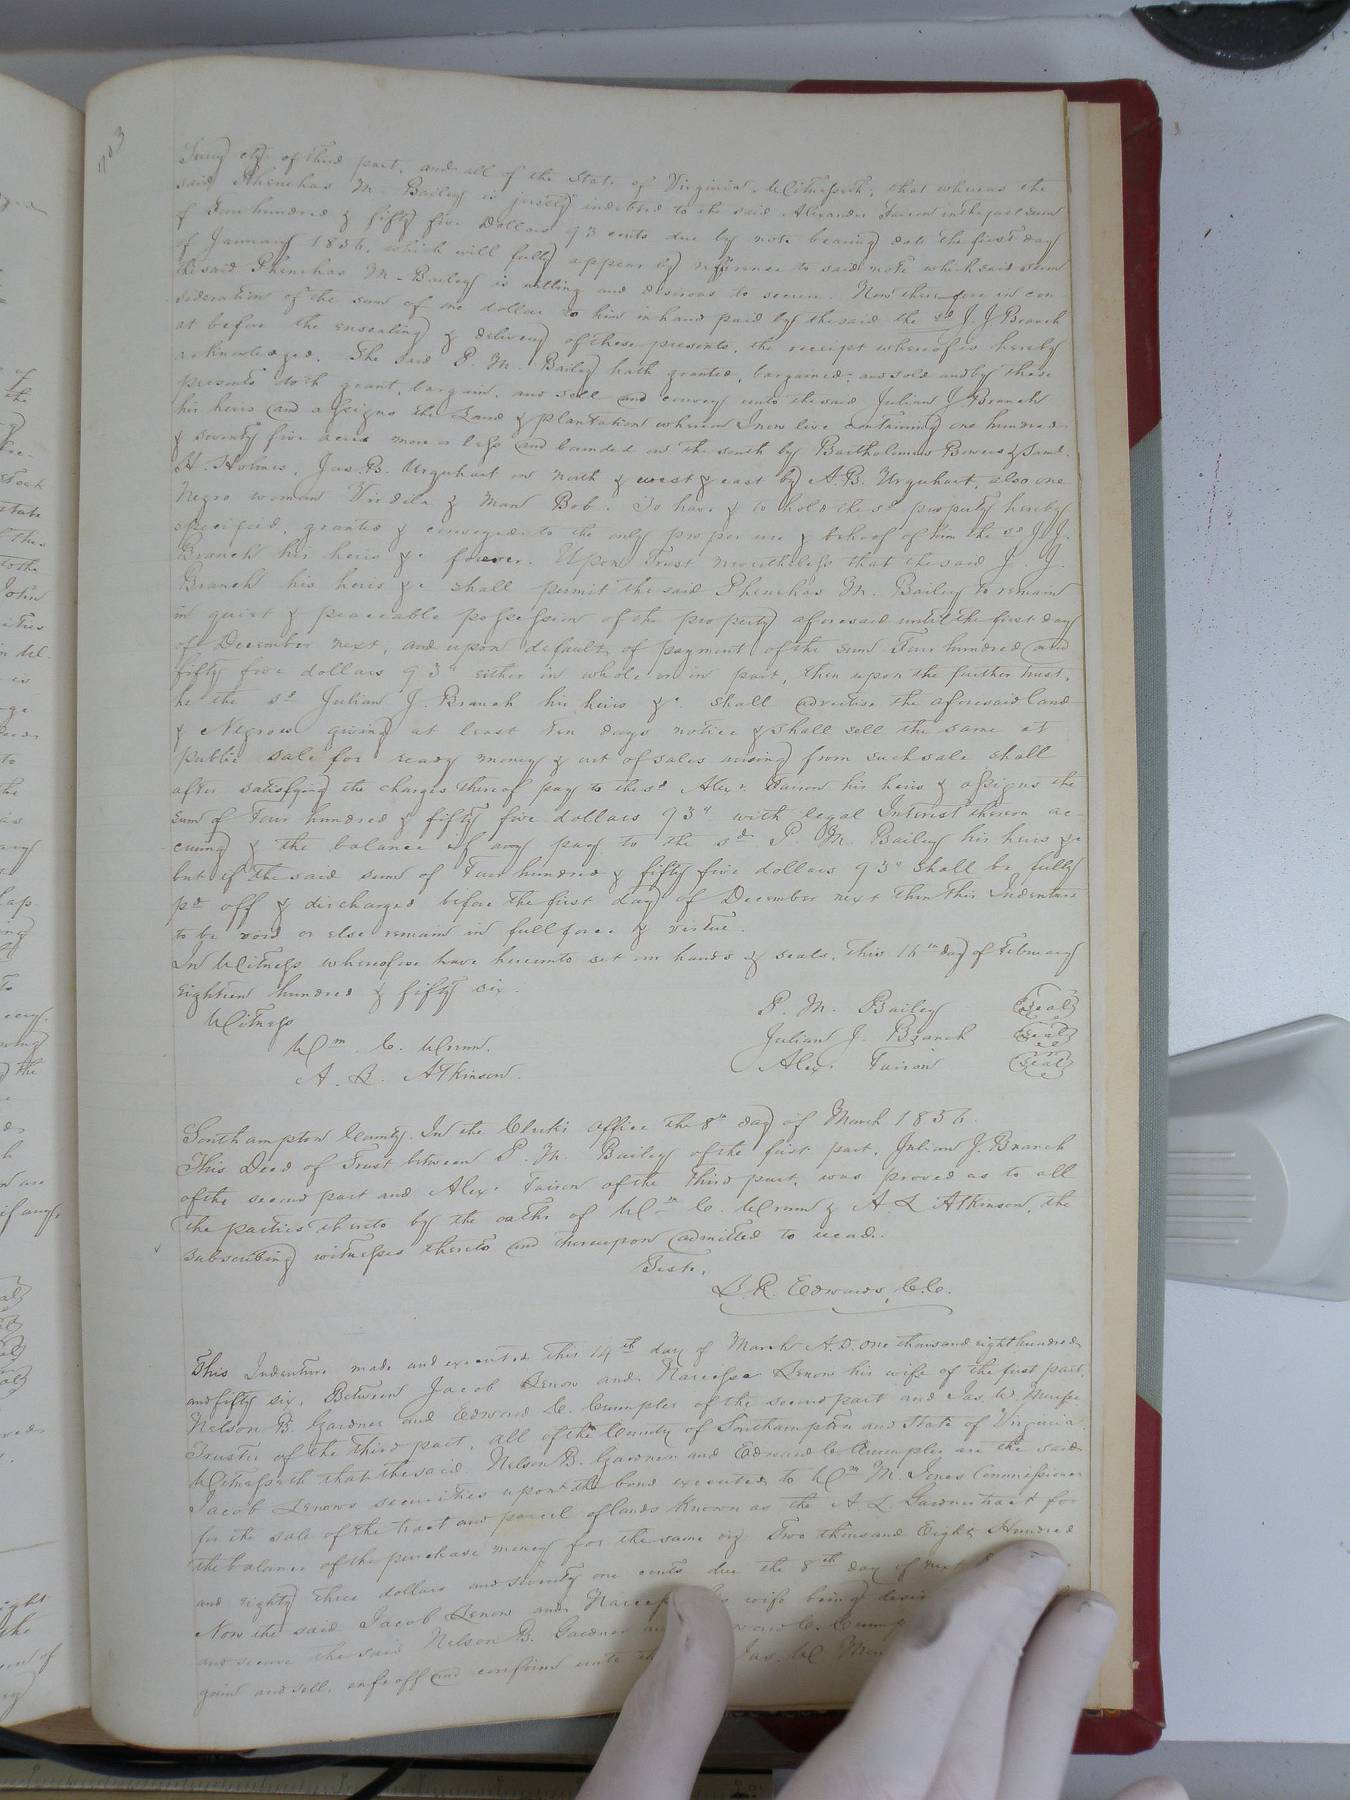 703
Surry Cty of third part, and all of the State of Virginia. Witnesseth, that whereas the
said Phenehas M. Bailey is justly indebted to the said Alexander Fairson in the just sum
of Four hundred & fifty five Dollars 93 cents due by note bearing date the first day
of January 1856, which will fully appear by reference to said note which said sum
the said Phenehas M. Bailey is willing and desirous to secure. Now therefore in con
sideration of the sum of one dollar to him in hand paid by the said the sd J. J Branch
at before the ensealing & delivery of these presents, the receipt whereof is hereby
acknowledged. The said P. M. Bailey hath granted, bargained; and sold and by these
presents doth grant, bargain, and sell and convey unto the said Julian J Branch
his heirs and assigns the Land & plantation whereon I now live containing one hundred
& seventy five acres more or less and bounded on the south by Bartholomew Bowers & Saml.
H. Holmes, Jas. B. Urquhart on north & west & east by A. B. Urquhart, also one
Negro woman & Man Bob. To have & to hold the sd property hereby
specified, granted & conveyed to the only proper use & behoof of him the sd J. J.
Branch his heirs &c forever. Upon Trust nevertheless that the said J. J.
Branch his heirs &c shall permit the said Phenehas M. Bailey to remain
in quiet & peaceable possession of the property aforesaid until the first day
of December next, and upon default of payment of the sum Four hundred and
fifty five dollars 93 either in whole or in part, then upon the further trust,
he the sd Julian J. Branch his heirs &c. shall advertise the aforesaid land
& Negroes giving at least ten days notice & shall sell the same at
public sale for ready money & out of sales arising from such sale shall
after satisfying the charges thereof pay to the sd Alex. Fairson his heirs & assigns the
sum of Four hundred & fifty five dollars 93" with legal Interest thereon ac-
cruing & the balance if any pay to the sd P. M. Bailey his heirs &c
but if the said sum of Four hundred & fifty five dollars 93" shall be fully
pd off & discharged before the first day of December next then this Indenture
to be void or else remain in full force & virtue.
In Witness whereof we have hereunto set our hands & seals, this 16th day of February
Eighteen hundred & fifty six.
P. M. Bailey (Seal)
Witness
Julian J. Branch (Seal)
Wm. C.
Alex. Fairson (Seal)
A. L. Atkinson.
Southampton County. In the Clerk's office the 8th day of March 1856.
This Deed of Trust between P. M. Bailey of the first part, Julian J. Branch
of the second part and Alex. Fairson of the third part, was proved as to all
the parties thereto by the oaths of Wm C. & A. L Atkinson, the
subscribing witnesses thereto and thereupon admitted to record.
Teste,
L. R. Edwards, C.C.
This Indenture made and executed this 14th day of March A.D. one thousand eight hundred
and fifty six, Between Jacob Lenow and Narcissa Lenow his wife of the first part,
Nelson B. Gardner and Edward C. Crumpler of the second part and Jas. W. Murfee
Trustee of the third part, all of the County of Southampton and State of Virginia.
Witnesseth that the said Nelson B. Gardner and Edward C Crumpler are the said
Jacob Lenows securities upon the bond executed to Wm M. Jones Commissioner
for the sale of the tract and parcel of lands known as the A L. Gardner tract for
the balance of the purchase money for the same viz, Two thousand Eight Hundred
and eighty three dollars and seventy one cents due the 8th day of next
Now the said Jacob Lenow and wife being
and secure the said Nelson B. Gardner
gain and sell, enfeoff and confirm unto Jas. W